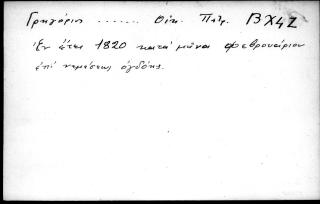 Γρηγόριος ....... Οἰκ. Πατρ. ΒΧ4Ζ
Ἐν ἔτει 1820 κατά μῆνα Φεβρουάριον
ἐπί νεμέσεως ὀγδόης.